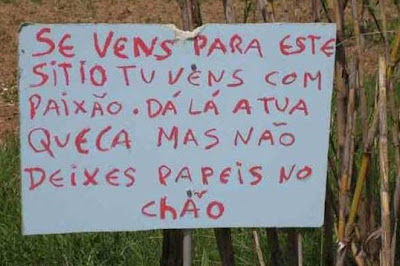 SE VENS PARA ESTE
SITIO TU VENS COM
PAIXÃO. DÁ LÁ A TUA
QUECA MAS NÃO
DEIXES PAPEIS NO
CHÃO